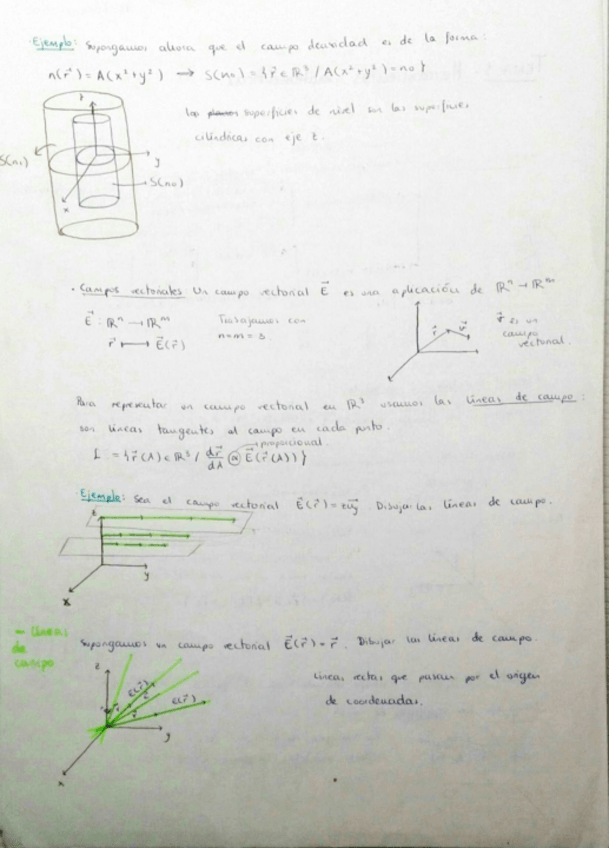 Ejemplo: Supongamos ahora que el campo densidad es de la forma:
n(r⃗) = A(x² + y²) ⟶ S(n₀) = {r⃗ ∈ ℝ³ / A(x² + y²) = n₀}
las superficies de nivel son las superficies
cilíndricas con eje z.
S(n₁)
y
S(n₀)
x
· Campos vectoriales Un campo vectorial E⃗ es una aplicación de ℝⁿ → ℝᵐ
E⃗ : ℝⁿ ⟶ ℝᵐ
r⃗ ⟼ E⃗(r⃗)
Trabajamos con
n=m=3
r⃗
v⃗
es un
campo
vectorial.
Para representar un campo vectorial en ℝ³ usamos las líneas de campo:
son líneas tangentes al campo en cada punto.
proporcional.
L = {r⃗(λ) ∈ ℝ³ / dr⃗/dλ α E⃗(r⃗(λ))}
Ejemplo: Sea el campo vectorial E⃗(r⃗) = z u⃗y. Dibujar las líneas de campo.
z
y
x
- líneas
de
campo
Supongamos un campo vectorial E⃗(r⃗) = r⃗. Dibujar las líneas de campo.
Líneas rectas que pasan por el origen
de coordenadas.
z
E(r⃗)
E(r⃗)
y
x